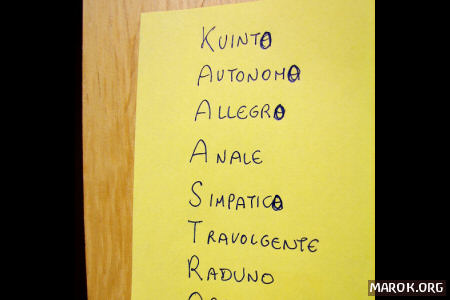 KUINTO
AUTONOMO
ALLEGRO
ANALE
SIMPATICO
TRAVOLGENTE
RADUNO
MAROK.ORG